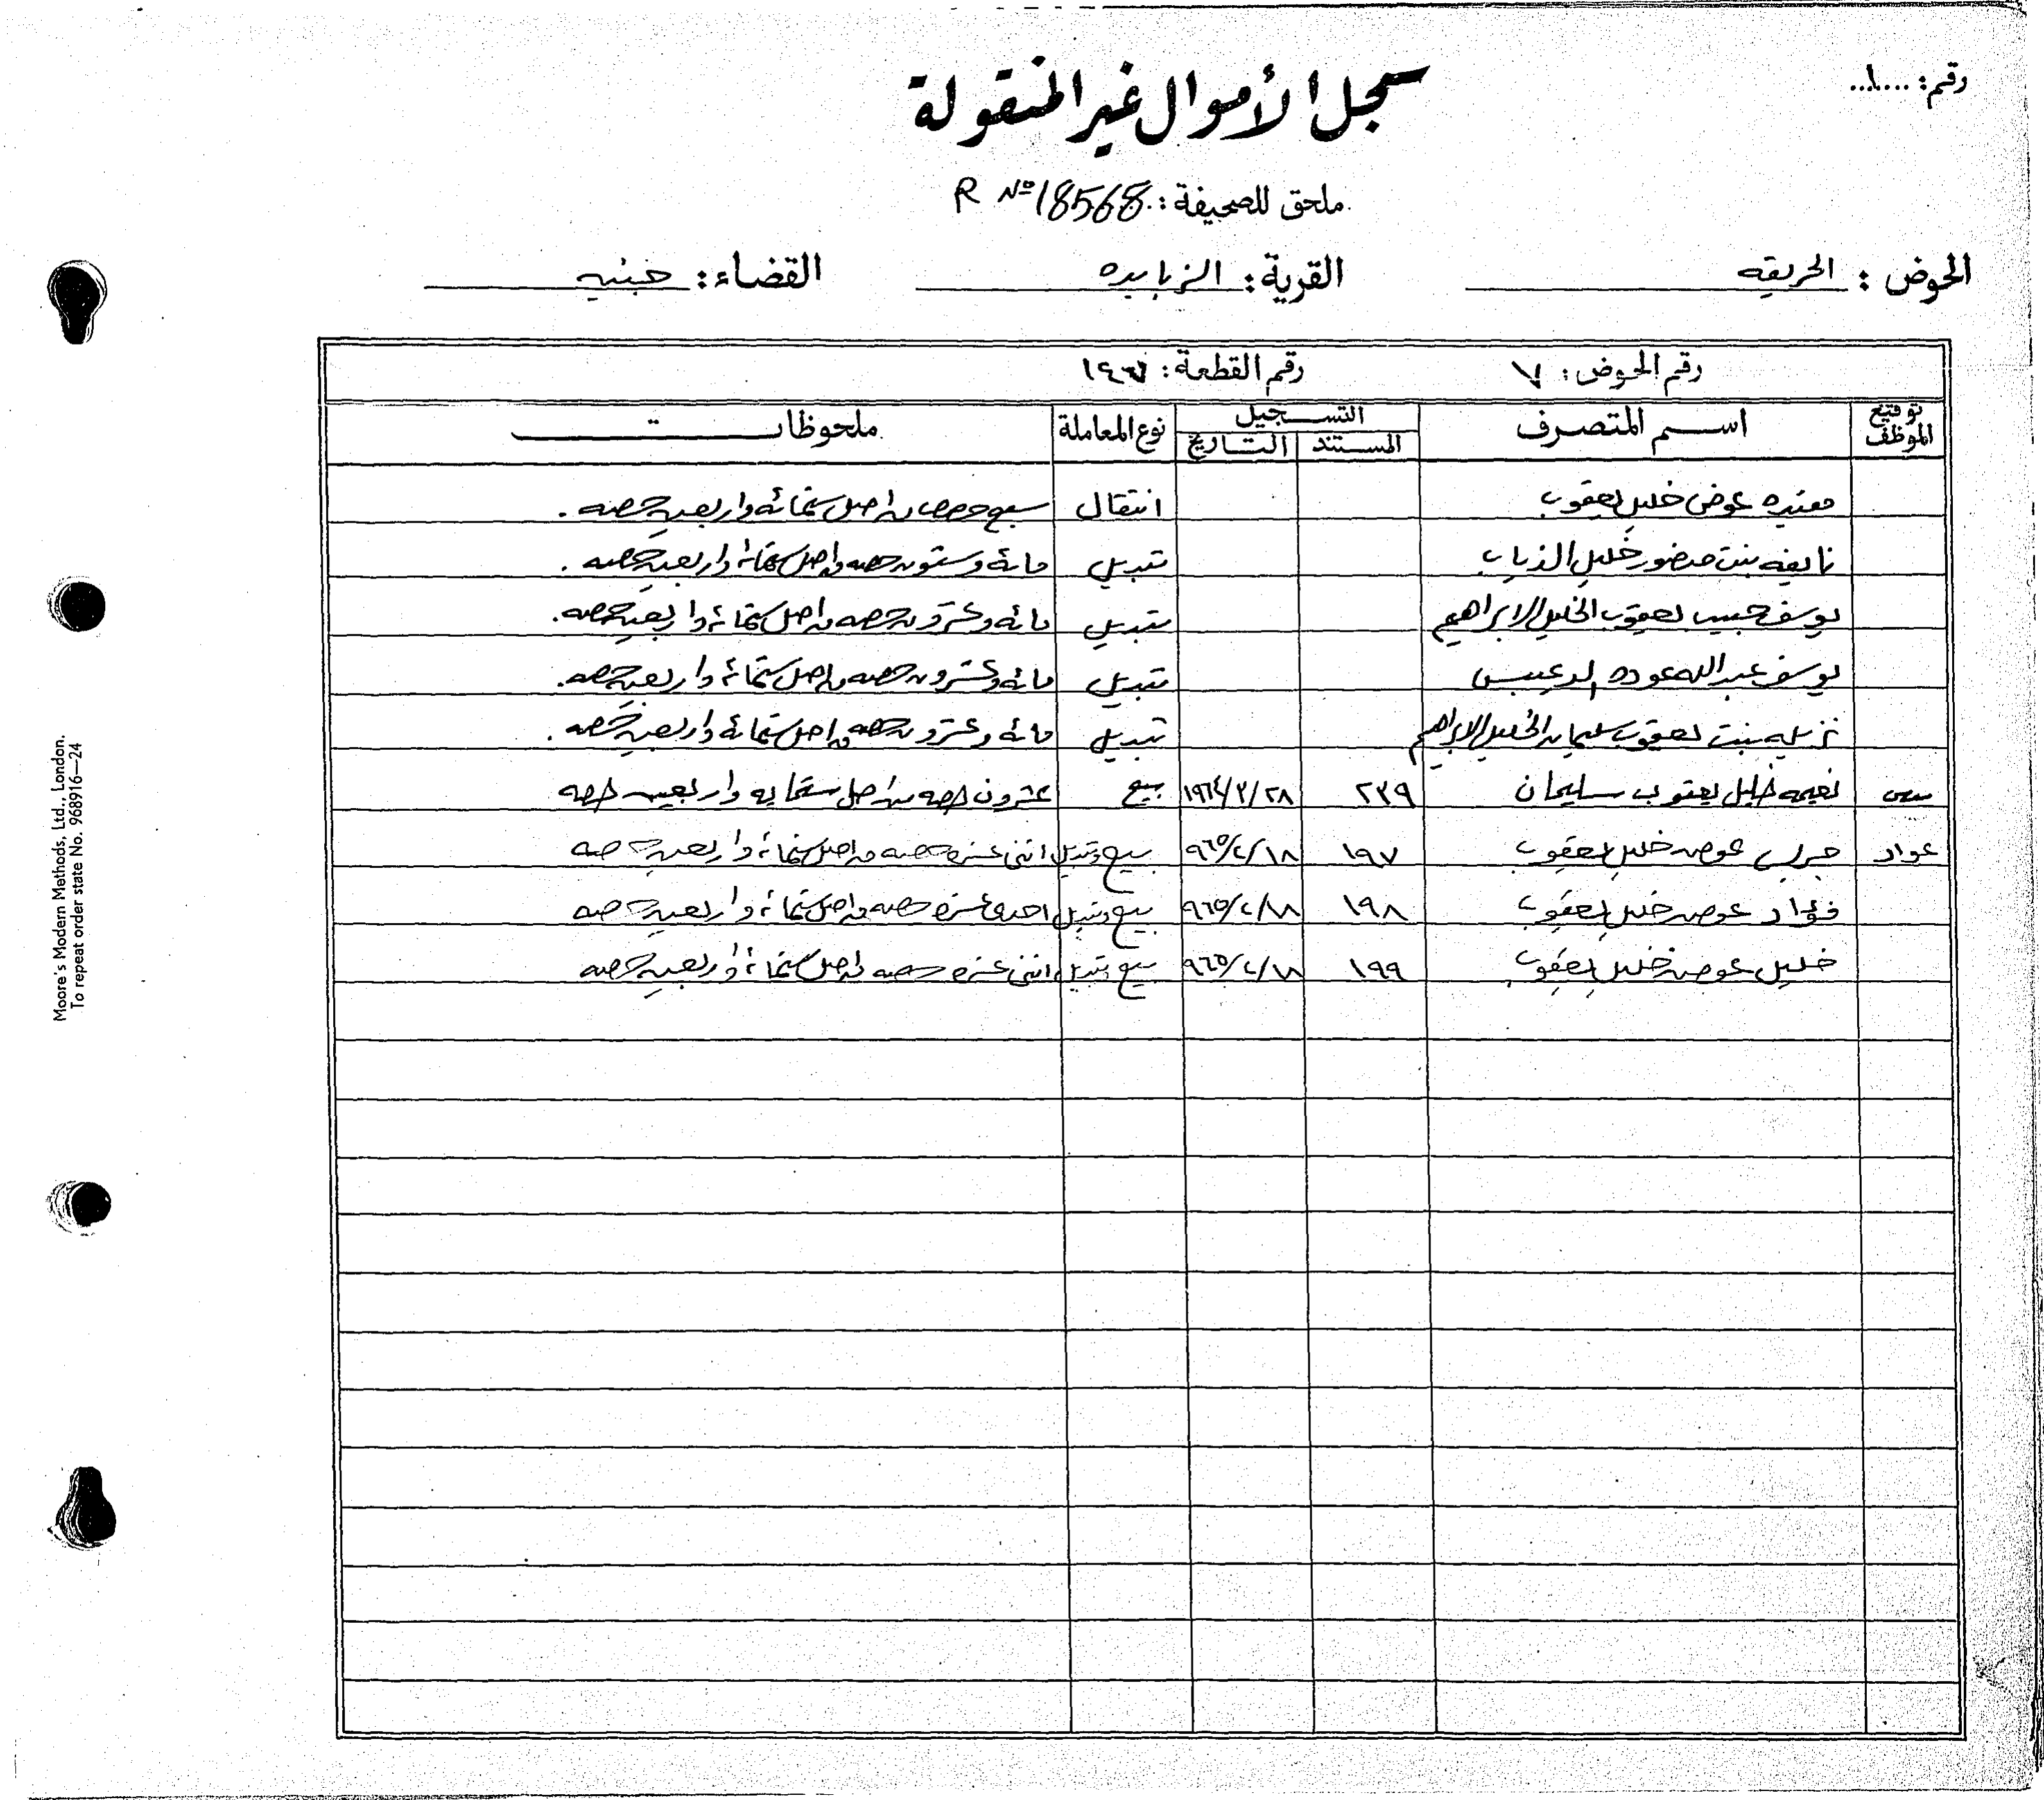 رقم: ...١...
سجل الأموال غير المنقولة
ملحق للصحيفة: R Nº 18568
الحوض: الحريقه القرية: الزبابده القضاء: جنين
رقم الحوض: ٧ رقم القطعة:
توقيع الموظف اسم المتصرف التسجيل نوع المعاملة ملحوظات
المستند التاريخ
عوض خليل يعقوب انتقال سبع حصص من اصل ستمائة واربعين حصه.
نايفه بنت منصور خليل الذياب تبديل مائة وستون حصه من اصل ستمائة واربعين حصه.
يوسف حبيب يعقوب الخليل الابراهيم تبديل مائة وعشرون حصه من اصل ستمائة واربعين حصه.
يوسف عبدالله عوده الدعيبس تبديل مائة وعشرون حصه من اصل ستمائة واربعين حصه.
نزيله بنت يعقوب سليمان الخليل الابراهيم تبديل مائة وعشرون حصه من اصل ستمائة واربعين حصه.
نعيمه خليل يعقوب سليمان ٢٣٩ ١٩٦٤/٣/٢٨ بيع عشرون حصه من اصل ستمايه واربعين حصه
عواد عوض خليل يعقوب ١٩٧ ٩٦٥/٢/١٨ بيع وتبديل اثنى عشره حصه من اصل ستمائة واربعين حصه
فؤاد عوض خليل يعقوب ١٩٨ ٩٦٥/٢/١٨ بيع وتبديل احدى عشره حصه من اصل ستمائة واربعين حصه
خليل عوض خليل يعقوب ١٩٩ ٩٦٥/٢/١٨ بيع وتبديل اثنى عشره حصه من اصل ستمائة واربعين حصه
Moore's Modern Methods, Ltd., London.
To repeat order state No. 968916—24